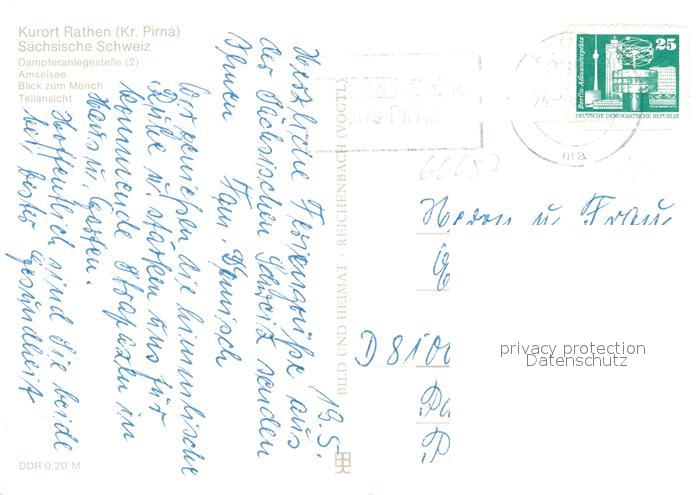 Kurort Rathen (Kr. Pirna)
Sächsische Schweiz
Dampferanlegestelle (2)
Amselsee
Blick zum Mönch
Teilansicht
19.5.
Herzliche Feriengrüße aus
der Sächsischen Schweiz senden
Ihnen
Fam.
Wir genießen die himmlische
Ruhe u. stärken uns für
kommende Strapazen in
Haus u. Garten.
Hoffentlich sind Sie beide
bei bester Gesundheit
DDR 0,20 M
BILD UND HEIMAT · REICHENBACH (VOGTL)
25
Berlin, Alexanderplatz
DEUTSCHE DEMOKRATISCHE REPUBLIK
aus Pirna
66687
Herrn u. Frau
D 8100
privacy protection
Datenschutz